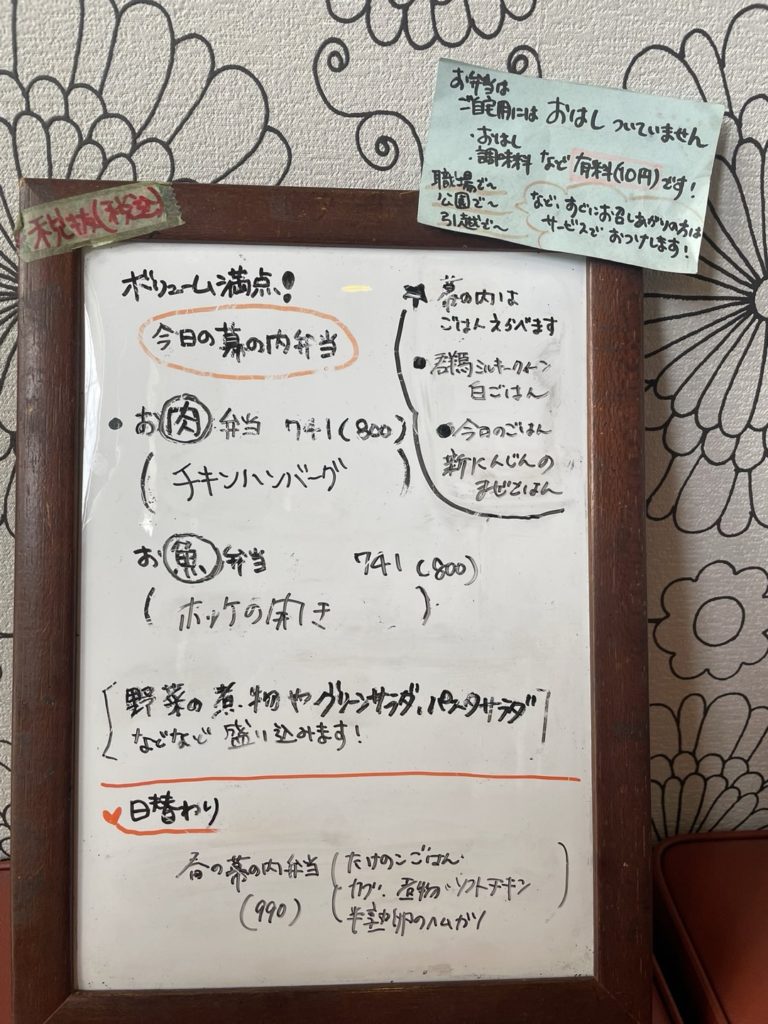 お弁当は
ご自宅用には おはし ついていません
・おはし
・調味料 など 有料(10円)です!
職場で〜
公園で〜
引越で〜
など、すぐにお召しあがりの方は
サービスで おつけします!
税抜(税込)
ボリューム満点!
今日の幕の内弁当
・お肉弁当 741(800)
(チキンハンバーグ)
お魚弁当 741(800)
(ホッケの開き)
★幕の内は
ごはんえらべます
●群馬ミルキークイーン
白ごはん
●今日のごはん
新にんじんの
まぜごはん
[野菜の煮物やグリーンサラダ、パスタサラダ
などなど 盛り込みます!]
♥日替わり
春の幕の内弁当
(990)
(たけのこごはん・
カブ、煮物・ソフトチキン
半熟卵のハムカツ)